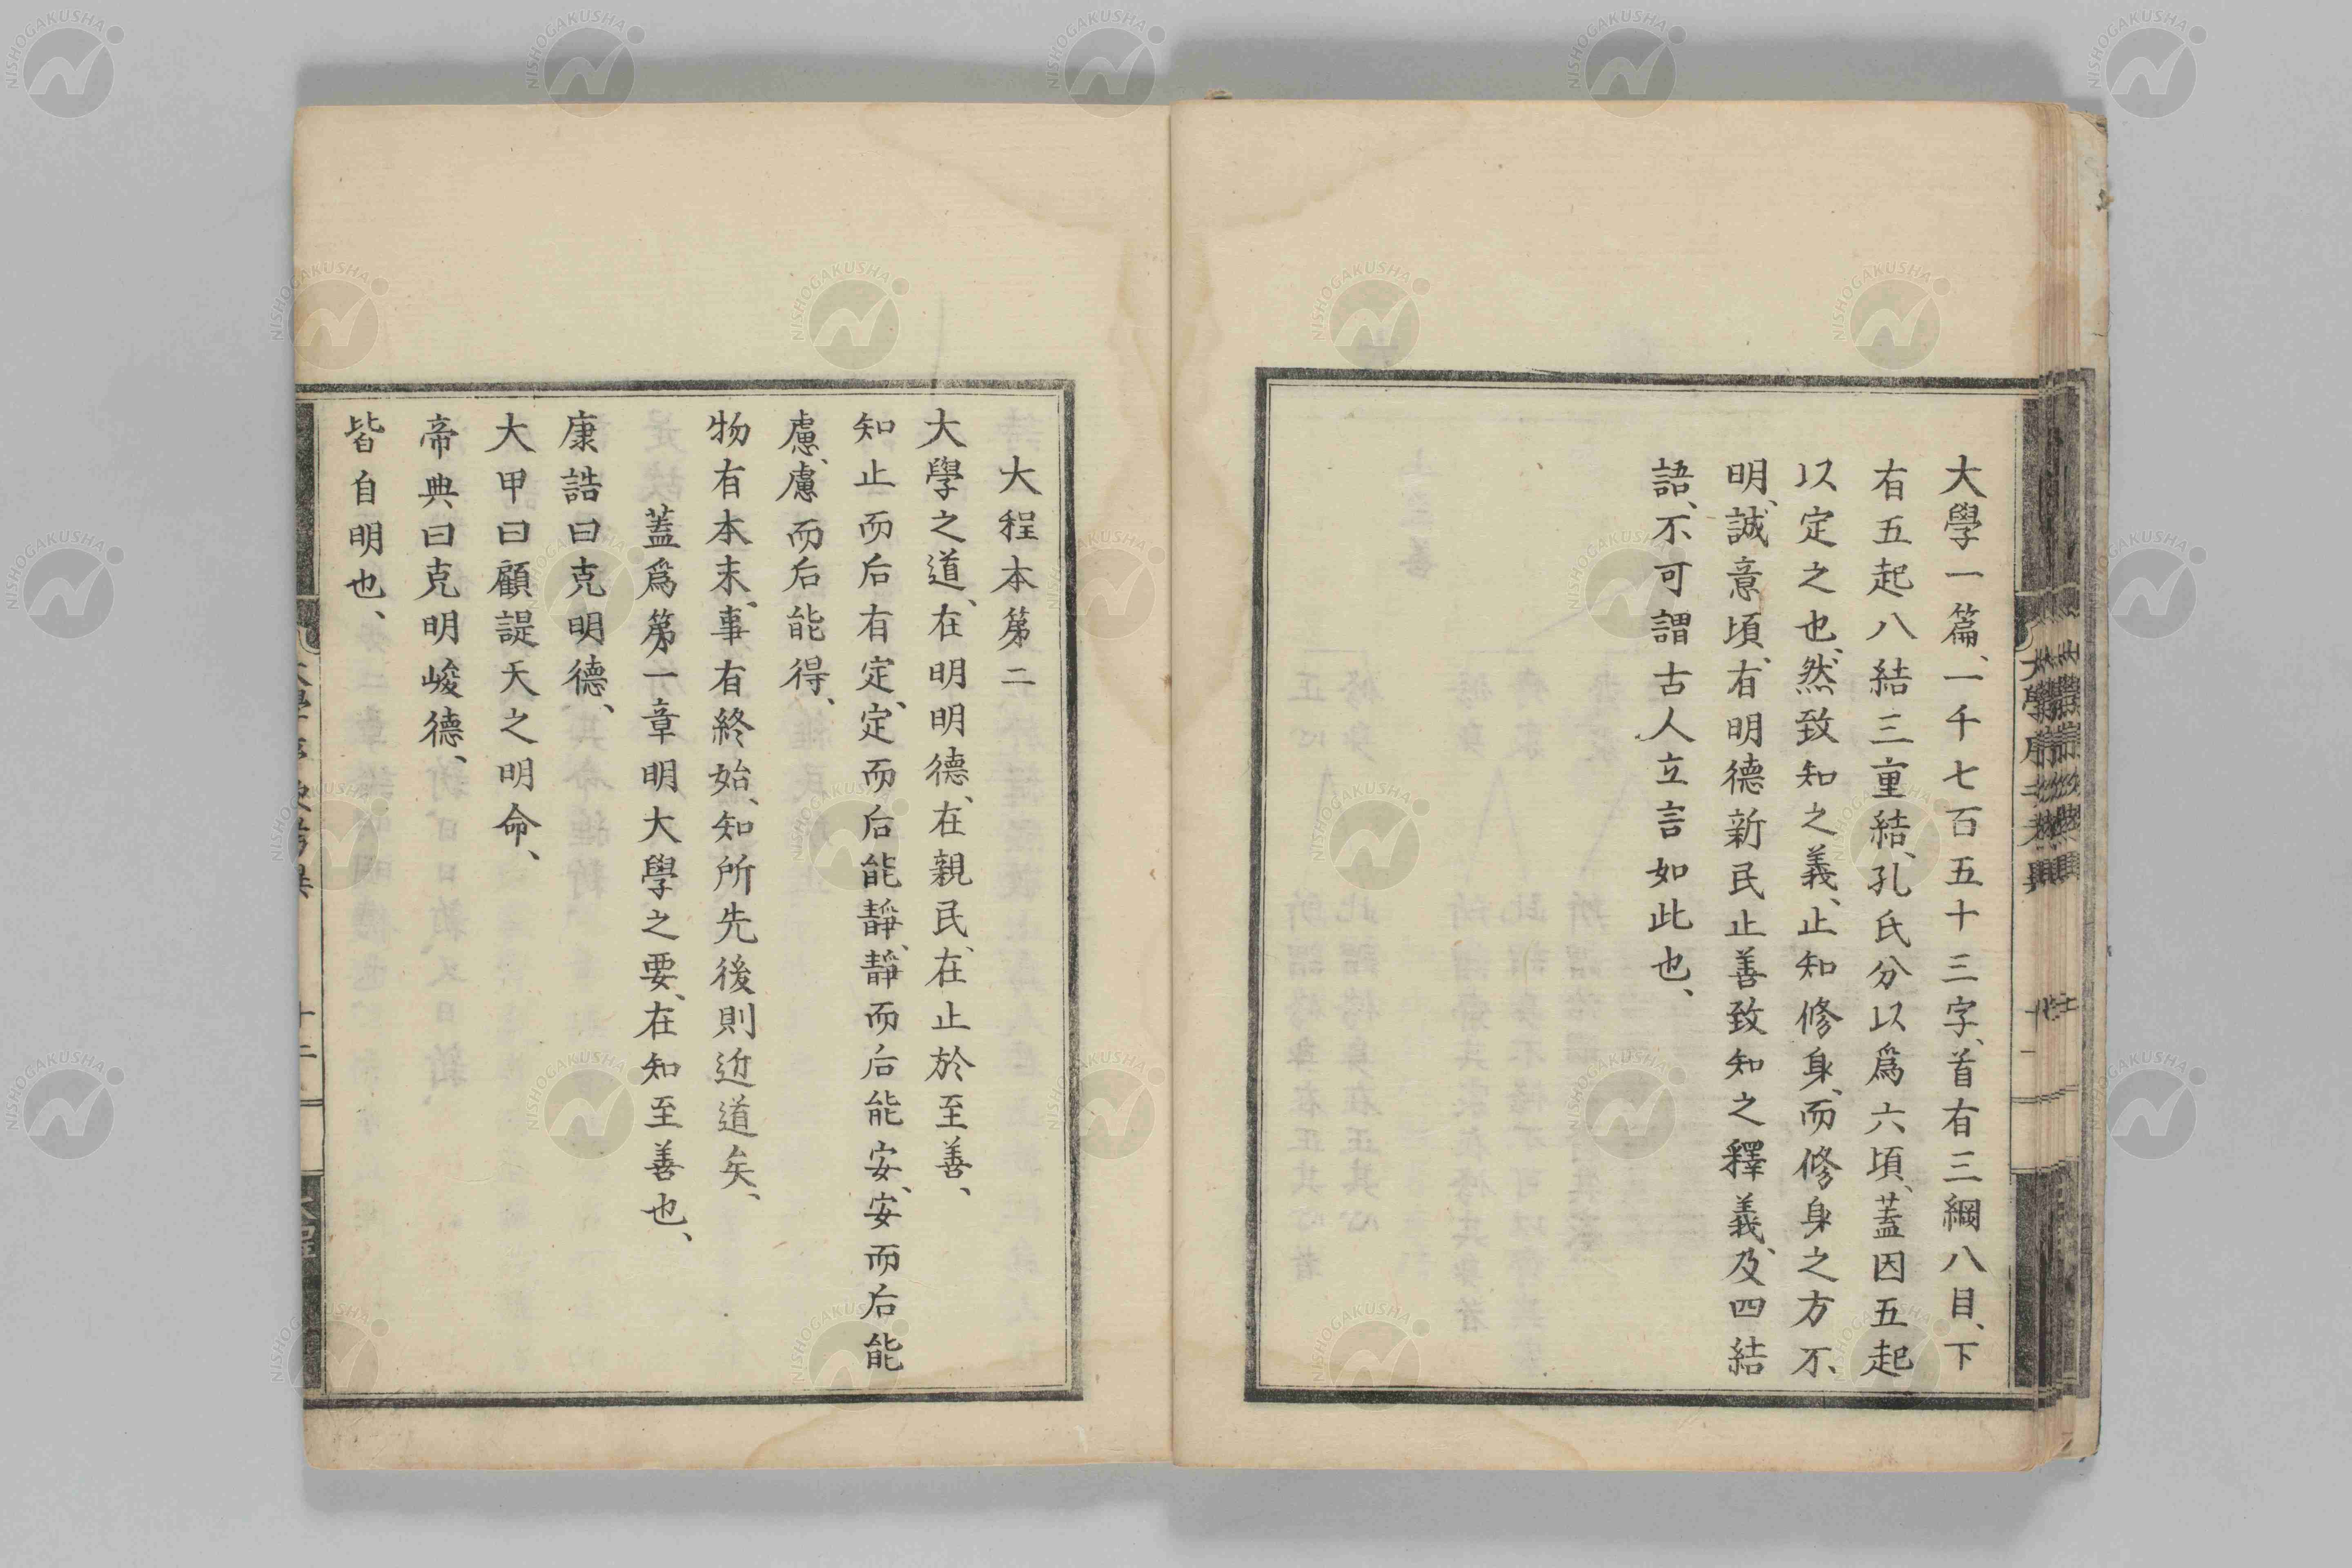 大學一篇、一千七百五十三字、首有三綱八目、下
有五起八結三重結、孔氏分以爲六頃、蓋因五起
以定之也、然致知之義、止知修身、而修身之方不、
明、誠意頃、有明德新民止善致知之釋義、及四結
語、不可謂古人立言如此也、
大程本第二
大學之道、在明明德、在親民、在止於至善、
知止而后有定、定而后能靜、靜而后能安、安而后能
慮、慮而后能得、
物有本末、事有終始、知所先後則近道矣、
蓋爲第一章明大學之要、在知至善也、
康誥曰克明德、
大甲曰顧諟天之明命、
帝典曰克明峻德、
皆自明也、
NISHOGAKUSHA